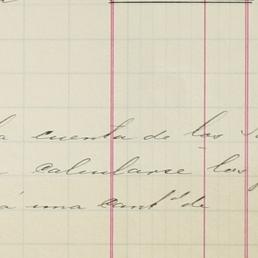 la cuenta de las
calcularse los
á una cant.d de